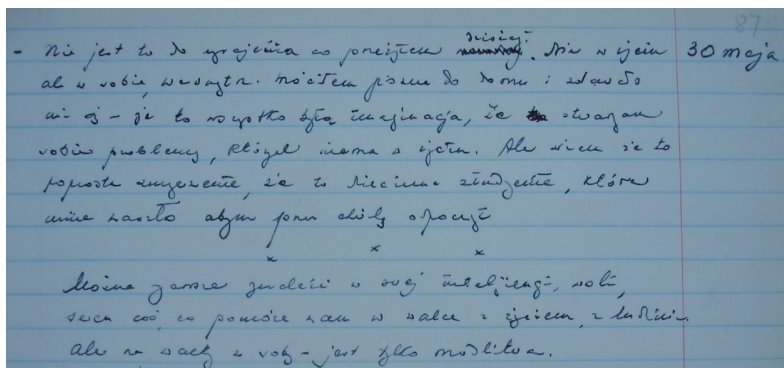 87
dzisiaj.
- Nie jest to do wyrażenia co przeżyłem. Nie w życiu 30 maja
ale w sobie, wewnątrz. Wróciłem późno do domu i zdawało
mi się – że to wszystko było imaginacja, że stwarzam
sobie problemy, których niema w życiu. Ale wiem że to
poprostu zmęczenie, że to złudzenie, które
mnie naszło abym przez chwilę odpoczął
x x x
Można zawsze znaleźć w swej inteligencji, woli,
sercu coś, co pomoże nam w walce z życiem, z ludźmi.
Ale na walkę z sobą – jest tylko modlitwa.